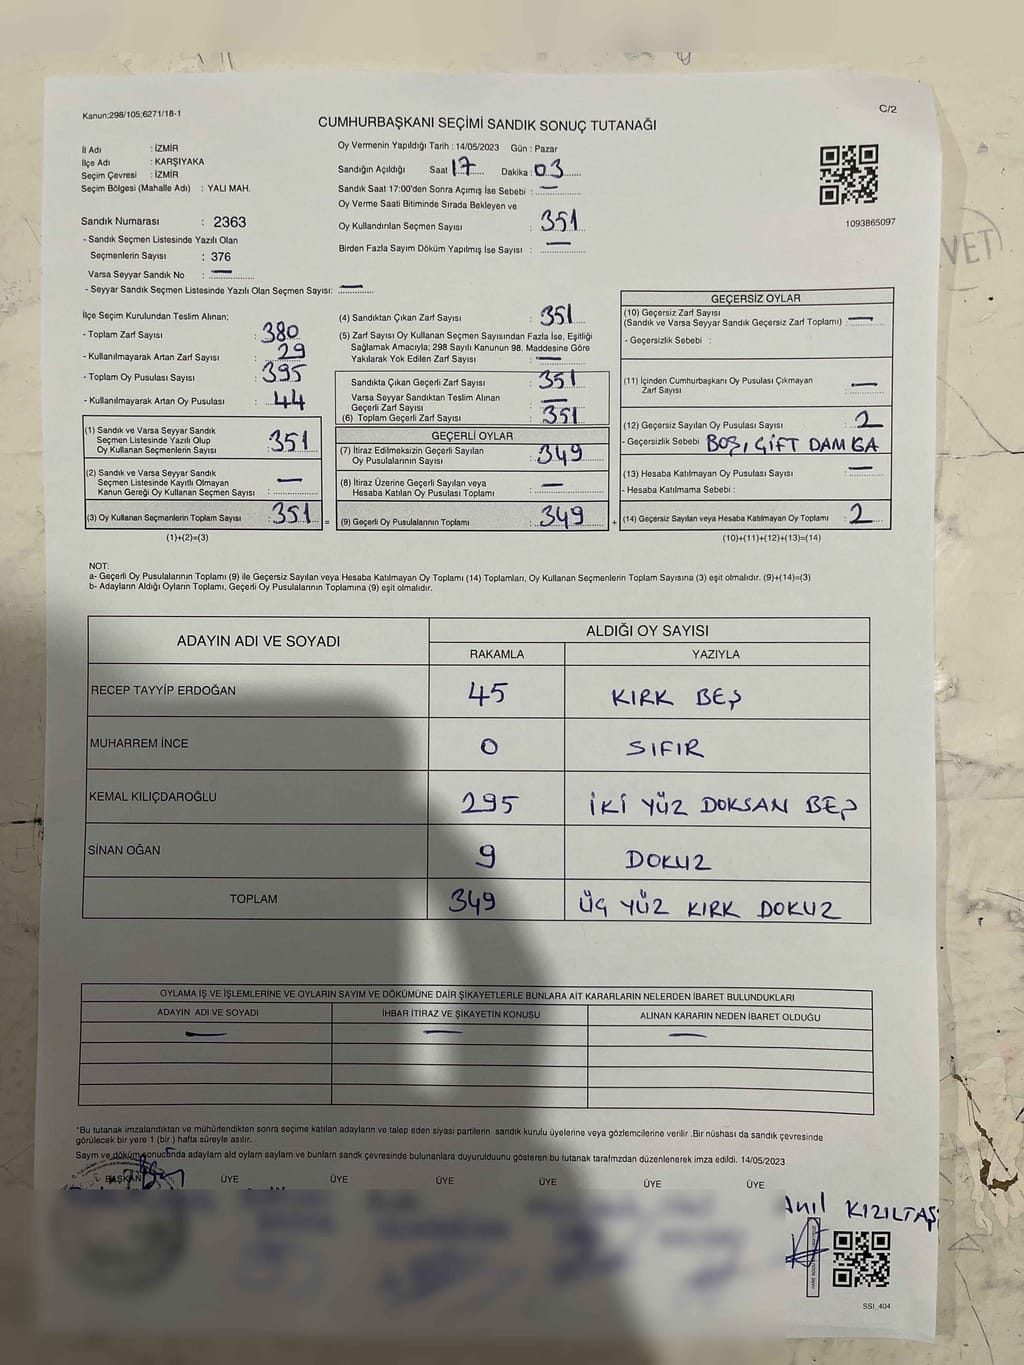 Kanun;298/105;6271/18-1
C/2
CUMHURBAŞKANI SEÇİMİ SANDIK SONUÇ TUTANAĞI
İl Adı : İZMİR
İlçe Adı : KARŞIYAKA
Seçim Çevresi : İZMİR
Seçim Bölgesi (Mahalle Adı) : YALI MAH.
Sandık Numarası : 2363
- Sandık Seçmen Listesinde Yazılı Olan
Seçmenlerin Sayısı : 376
Varsa Seyyar Sandık No : —
- Seyyar Sandık Seçmen Listesinde Yazılı Olan Seçmen Sayısı: —
Oy Vermenin Yapıldığı Tarih : 14/05/2023 Gün : Pazar
Sandığın Açıldığı Saat 17 Dakika : 03
Sandık Saat 17:00'den Sonra Açımış İse Sebebi : —
Oy Verme Saati Bitiminde Sırada Bekleyen ve
Oy Kullandırılan Seçmen Sayısı : 351
Birden Fazla Sayım Döküm Yapılmış İse Sayısı : —
1093865097
VET
İlçe Seçim Kurulundan Teslim Alınan;
- Toplam Zarf Sayısı : 380
- Kullanılmayarak Artan Zarf Sayısı : 29
- Toplam Oy Pusulası Sayısı : 395
- Kullanılmayarak Artan Oy Pusulası : 44
(1) Sandık ve Varsa Seyyar Sandık
Seçmen Listesinde Yazılı Olup
Oy Kullanan Seçmenlerin Sayısı : 351
(2) Sandık ve Varsa Seyyar Sandık
Seçmen Listesinde Kayıtlı Olmayan
Kanun Gereği Oy Kullanan Seçmen Sayısı : —
(3) Oy Kullanan Seçmenlerin Toplam Sayısı : 351
(1)+(2)=(3)
(4) Sandıktan Çıkan Zarf Sayısı : 351
(5) Zarf Sayısı Oy Kullanan Seçmen Sayısından Fazla İse, Eşitliği
Sağlamak Amacıyla; 298 Sayılı Kanunun 98. Maddesine Göre
Yakılarak Yok Edilen Zarf Sayısı : —
Sandıkta Çıkan Geçerli Zarf Sayısı : 351
Varsa Seyyar Sandıktan Teslim Alınan
Geçerli Zarf Sayısı : —
(6) Toplam Geçerli Zarf Sayısı : 351
GEÇERLİ OYLAR
(7) İtiraz Edilmeksizin Geçerli Sayılan
Oy Pusulalarının Sayısı : 349
(8) İtiraz Üzerine Geçerli Sayılan veya
Hesaba Katılan Oy Pusulası Toplamı : —
= (9) Geçerli Oy Pusulalarının Toplamı : 349 +
GEÇERSİZ OYLAR
(10) Geçersiz Zarf Sayısı
(Sandık ve Varsa Seyyar Sandık Geçersiz Zarf Toplamı) : —
- Geçersizlik Sebebi :
(11) İçinden Cumhurbaşkanı Oy Pusulası Çıkmayan
Zarf Sayısı : —
(12) Geçersiz Sayılan Oy Pusulası Sayısı : 2
- Geçersizlik Sebebi BOŞ, ÇİFT DAMGA
(13) Hesaba Katılmayan Oy Pusulası Sayısı : —
- Hesaba Katılmama Sebebi :
(14) Geçersiz Sayılan veya Hesaba Katılmayan Oy Toplamı : 2
(10)+(11)+(12)+(13)=(14)
NOT:
a- Geçerli Oy Pusulalarının Toplamı (9) ile Geçersiz Sayılan veya Hesaba Katılmayan Oy Toplamı (14) Toplamları, Oy Kullanan Seçmenlerin Toplam Sayısına (3) eşit olmalıdır. (9)+(14)=(3)
b- Adayların Aldığı Oyların Toplamı, Geçerli Oy Pusulalarının Toplamına (9) eşit olmalıdır.
ADAYIN ADI VE SOYADI
ALDIĞI OY SAYISI
RAKAMLA YAZIYLA
RECEP TAYYİP ERDOĞAN 45 KIRK BEŞ
MUHARREM İNCE 0 SIFIR
KEMAL KILIÇDAROĞLU 295 İKİ YÜZ DOKSAN BEŞ
SİNAN OĞAN 9 DOKUZ
TOPLAM 349 ÜÇ YÜZ KIRK DOKUZ
OYLAMA İŞ VE İŞLEMLERİNE VE OYLARIN SAYIM VE DÖKÜMÜNE DAİR ŞİKAYETLERLE BUNLARA AİT KARARLARIN NELERDEN İBARET BULUNDUKLARI
ADAYIN ADI VE SOYADI İHBAR İTİRAZ VE ŞİKAYETİN KONUSU ALINAN KARARIN NEDEN İBARET OLDUĞU
— — —
*Bu tutanak imzalandıktan ve mühürlendikten sonra seçime katılan adayların ve talep eden siyasi partilerin sandık kurulu üyelerine veya gözlemcilerine verilir .Bir nüshası da sandık çevresinde
görülecek bir yere 1 (bir ) hafta süreyle asılır.
Sayım ve döküm sonucunda adayların aldığı oyların sayıların ve bunların sandık çevresinde bulunanlara duyurulduğunu gösteren bu tutanak tarafımızdan düzenlenerek imza edildi. 14/05/2023
BAŞKAN ÜYE ÜYE ÜYE ÜYE ÜYE ÜYE
Anıl KIZILTAŞ
SSI_404